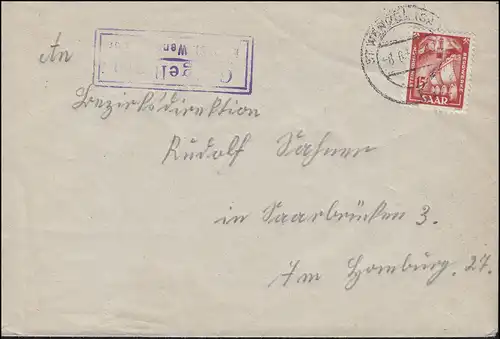 An
Bezirksdirektion
Rudolf Sahner
in Saarbrücken 3.
Am Homburg. 27.
ST. WENDEL (SAAR)
15
SAAR